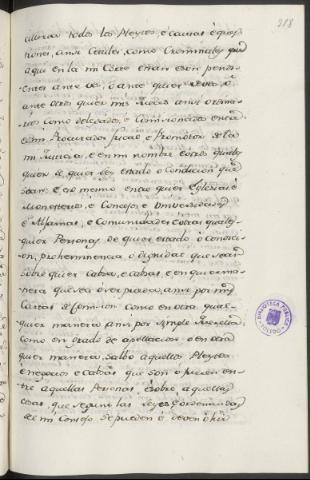 218
acerca todos los Pleytos, e causas e ques
tiones, ansi Ceviles, como Creminales que
aqui en la mi Corte estan e son pendi-
entes ante vos, o ante quier
ante otros quier mis Jueces ansi ordina-
rios como delegados, e Comisionados entre
el mi Procurador fiscal e Promotor de la
mi Justicia, e en mi nombre e otros quales
quier de quier ley estado o Condicion que
sean e eso mesmo entre quier Eglesias e
Monesterios, e Concejos e Universidades
e Aljamas, e Comunidades e otras quales-
quier Personas de quier estado o condici-
on, prehemimencia o dignidad que sean
sobre quier Cabsa, e cabsas, e en quier ma-
nera que sea o ser pueda, ansi por mis
Cartas de Comision como en otra qual-
quier manera ansi por simple querella
como en grado de apellacion o en otra
quier manera, salbo aquellos Pleytos
e negocios e Cabsas que son o fueren en-
tre aquellas Personas e sobre aquellas
cosas que segunt las Leyes e ordenanzas
de mi Consejo se pueden o deven oir
BIBLIOTECA PUBLICA
TOLEDO